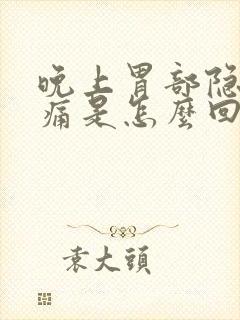 晚上胃部隐
痛是怎麼回
袁大頭